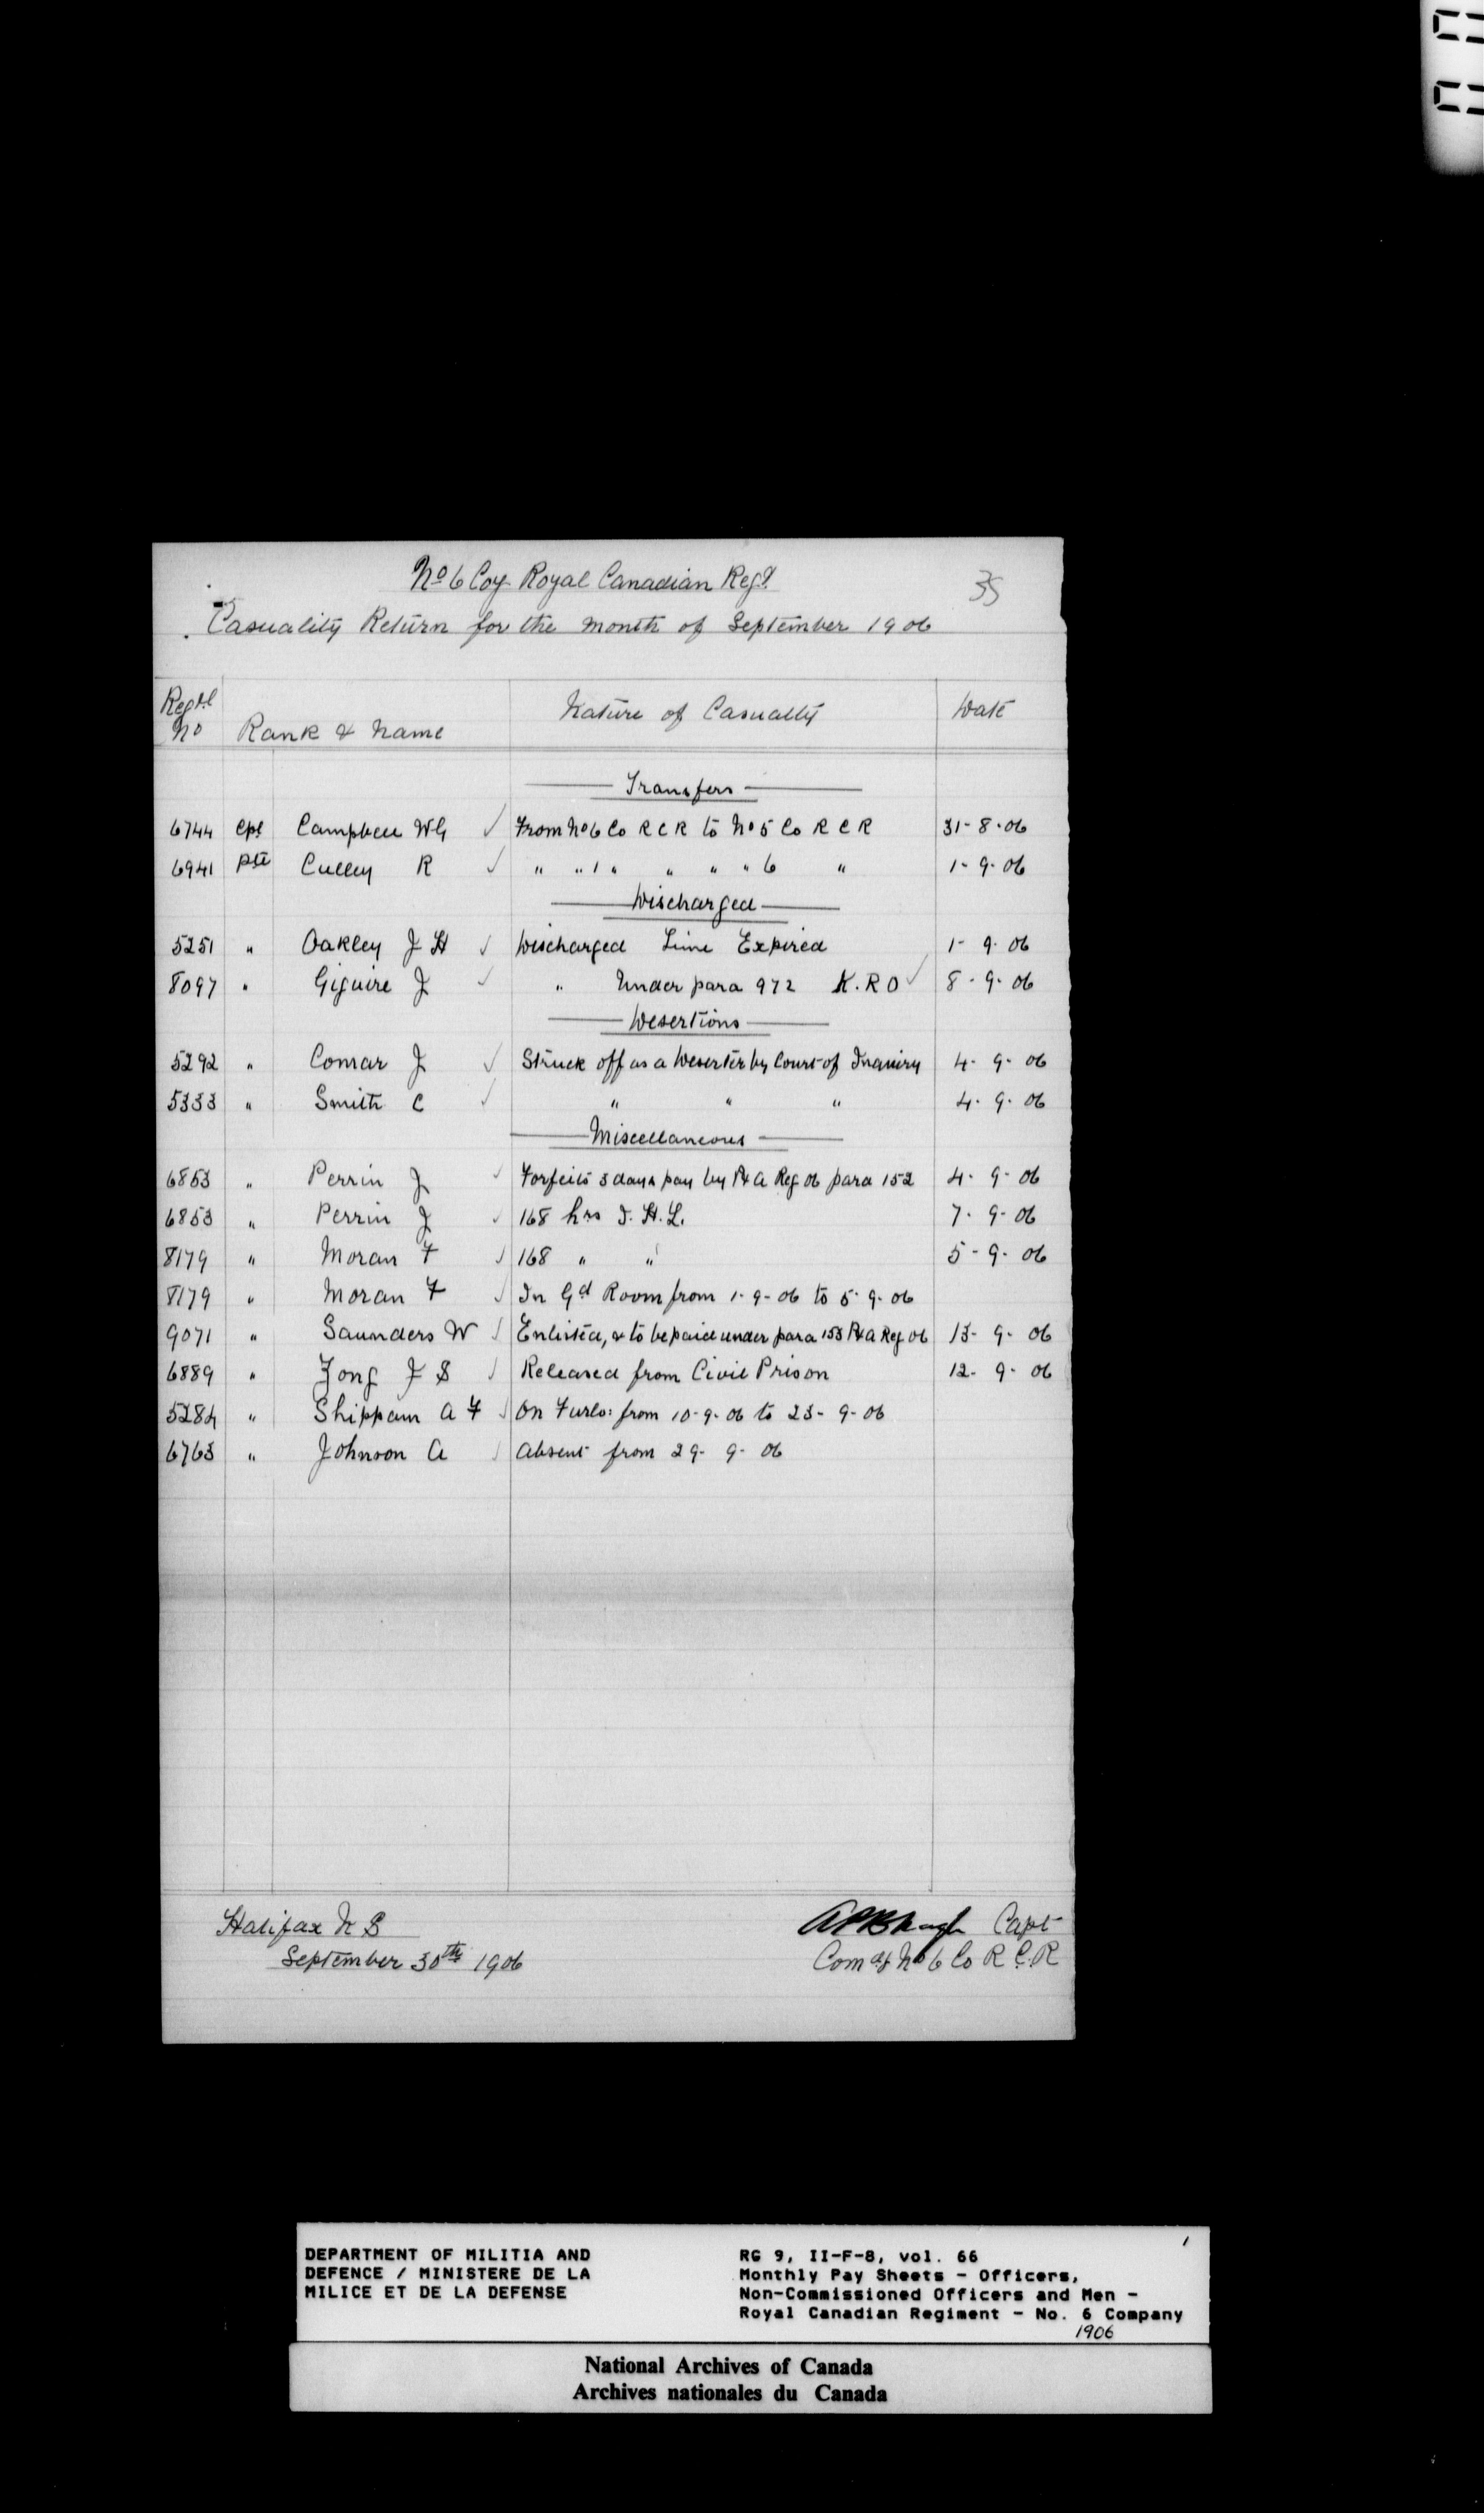 No 6 Coy Royal Canadian Regt.
35
Casuality Return for the month of September 1906
Regtl No | Rank & Name | Nature of Casualty | Date
Transfers
6744 Cpl Campbell W G ✓ From No 6 Co R C R to No 5 Co R C R 31-8-06
6941 Pte Culley R ✓ " " 1 " " " " 6 " 1-9-06
Discharged
5251 " Oakley J H ✓ Discharged Time Expired 1-9-06
8097 " Giguire J ✓ " Under para 972 K.R O ✓ 8-9-06
Desertions
5292 " Comar J ✓ Struck off as a Deserter by Court of Inquiry 4-9-06
5333 " Smith C ✓ " " " 4-9-06
Miscellaneous
6853 " Perrin J ✓ Forfeits 3 days pay by P & A Reg 06 para 152 4-9-06
6853 " Perrin J ✓ 168 hrs I. H. L. 7-9-06
8179 " Moran F ✓ 168 " " 5-9-06
8179 " Moran F ✓ In Gd Room from 1-9-06 to 5-9-06
9071 " Saunders W ✓ Enlisted, & to be paid under para 153 P & A Reg 06 13-9-06
6889 " Zong J S ✓ Released from Civil Prison 12-9-06
5284 " Shippam A F ✓ On Furlo: from 10-9-06 to 23-9-06
6763 " Johnson A ✓ Absent from 29-9-06
Halifax N S
September 30th 1906
Capt
Comdg No 6 Co R.C.R
DEPARTMENT OF MILITIA AND
DEFENCE / MINISTERE DE LA
MILICE ET DE LA DEFENSE
RG 9, II-F-8, vol. 66
Monthly Pay Sheets - Officers,
Non-Commissioned Officers and Men -
Royal Canadian Regiment - No. 6 Company
1906
National Archives of Canada
Archives nationales du Canada